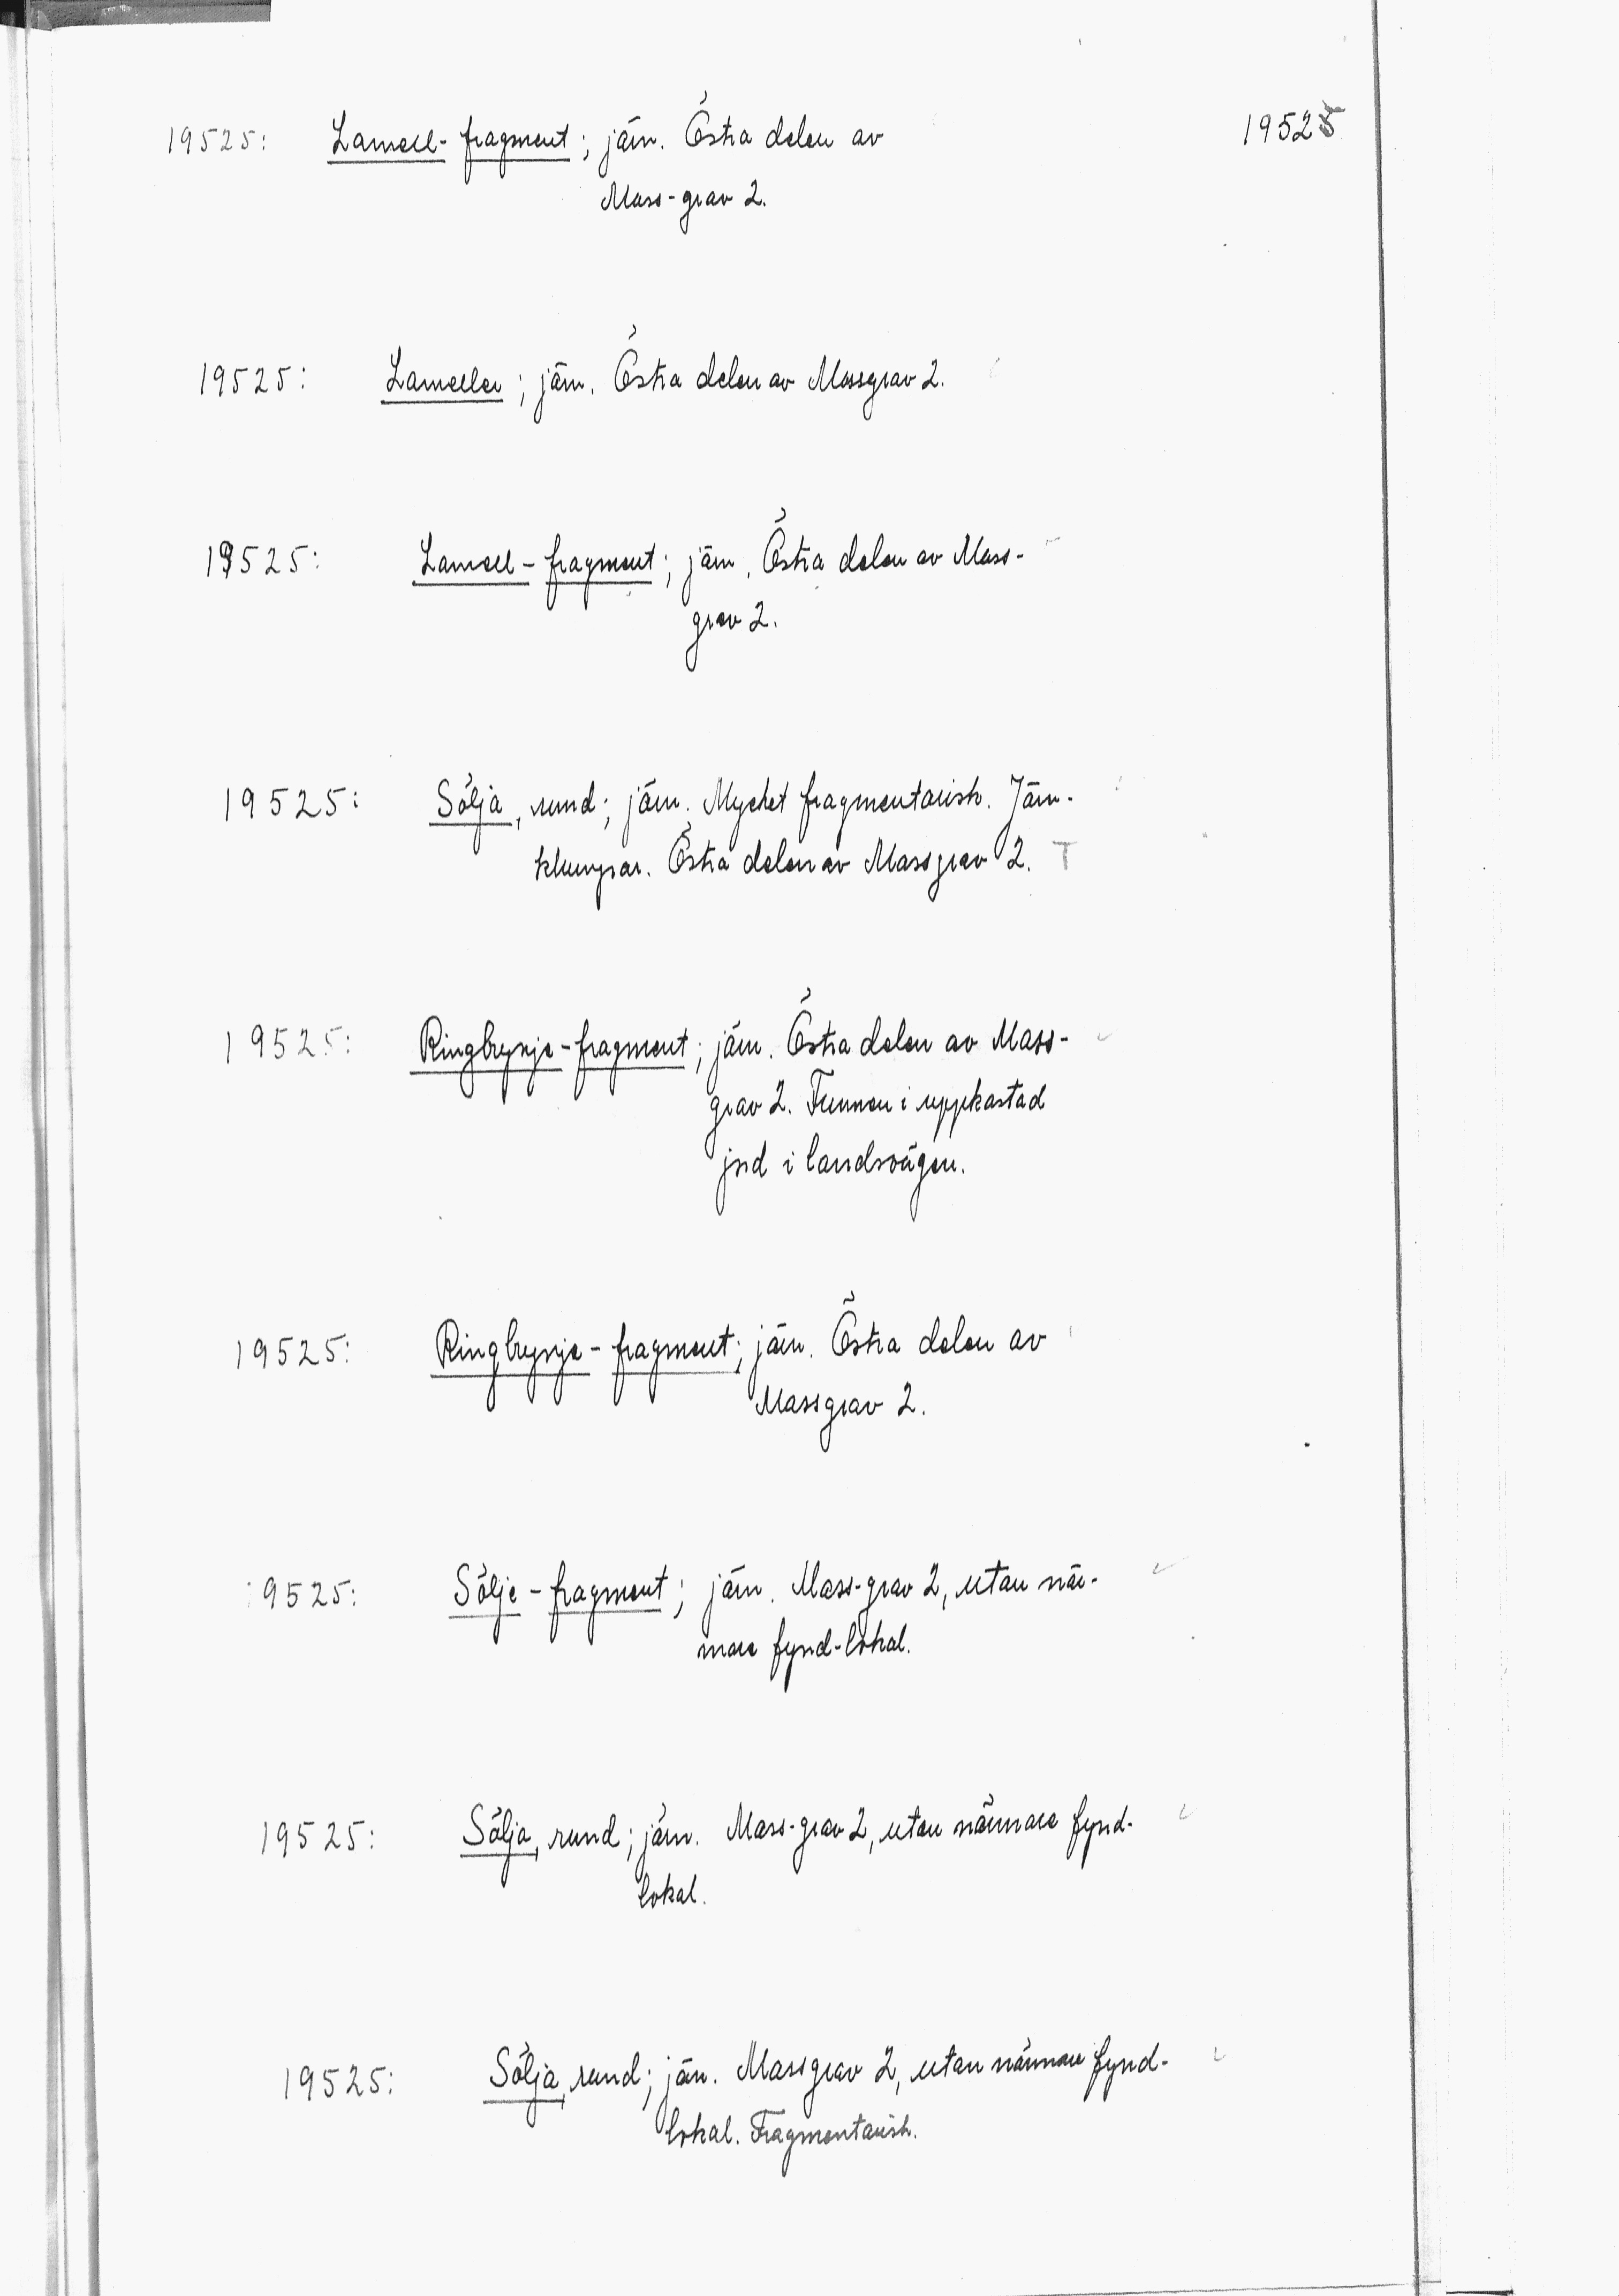 19525: Lamell-fragment; järn. Östra delen av 19525
Mass-grav 2.
19525: Lameller; järn. Östra delen av Massgrav 2.
19525: Lamell-fragment; järn. Östra delen av Mass-
grav 2.
19525: Sölja, rund; järn. Mycket fragmentarisk. Järn-
klumpar. Östra delen av Massgrav 2. T
19525: Ringbrynje-fragment; järn. Östra delen av Mass-
grav 2. Funnen i uppkastad
jord i landsvägen.
19525: Ringbrynje-fragment; järn. Östra delen av
Massgrav 2.
19525: Sölje-fragment; järn. Mass-grav 2, utan när-
mare fynd-lokal.
19525: Sölja, rund; järn. Mass-grav 2, utan närmare fynd-
lokal.
19525: Sölja, rund; järn. Massgrav 2, utan närmare fynd-
lokal. Fragmentarisk.